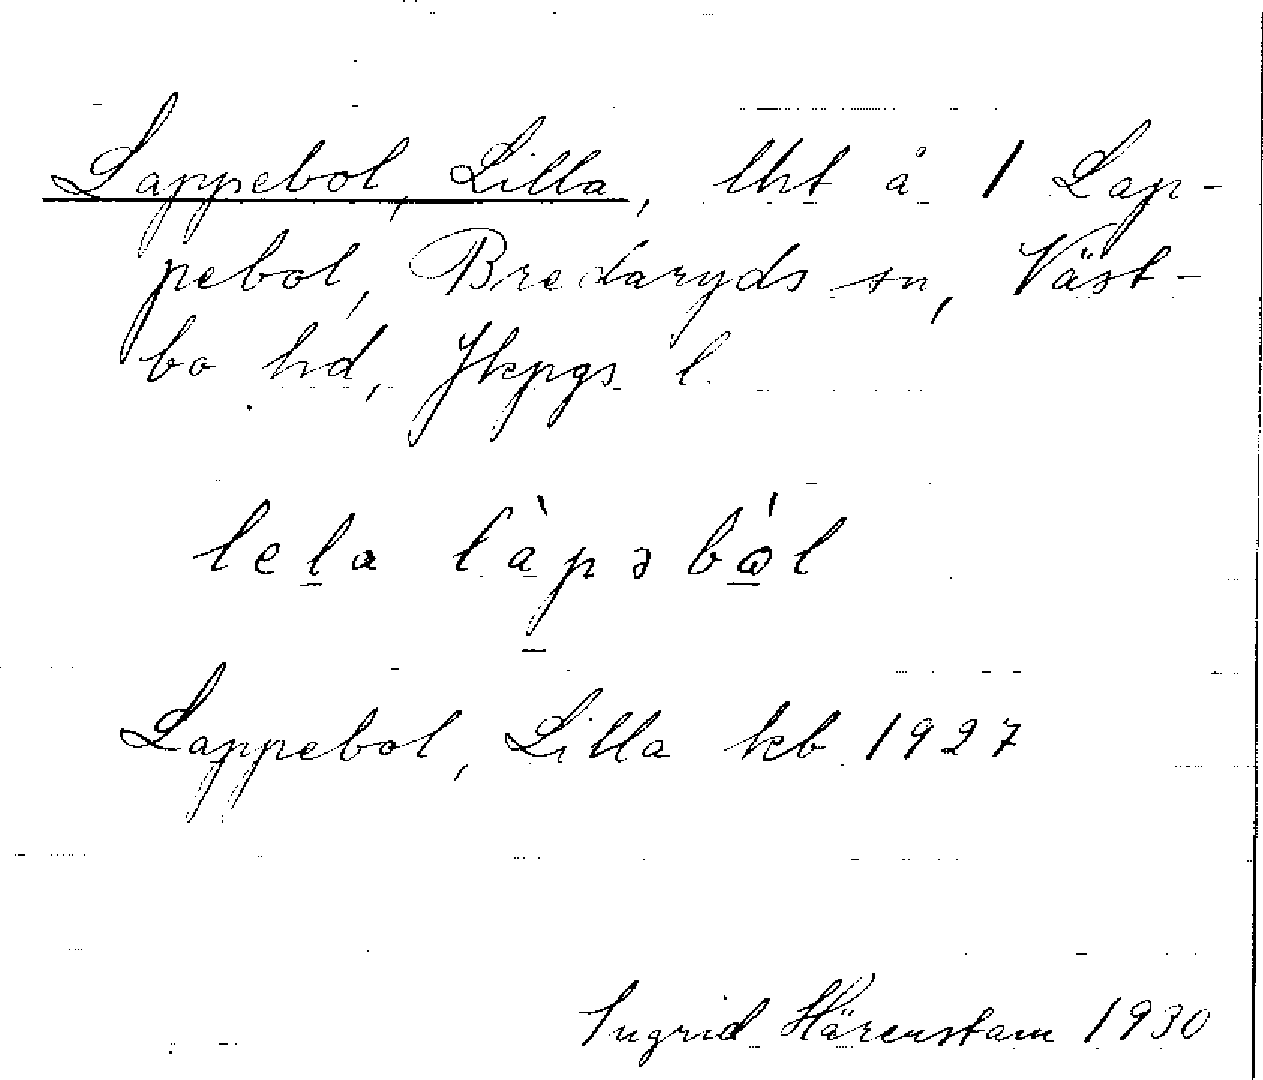 Lappebol, Lilla, lht å 1 Lap-
pebol, Bredaryds sn, Väst-
bo hd, Jkpgs l.
lela làpəbål
Lappebol, Lilla kb 1927
Ingrid Härenstam 1930